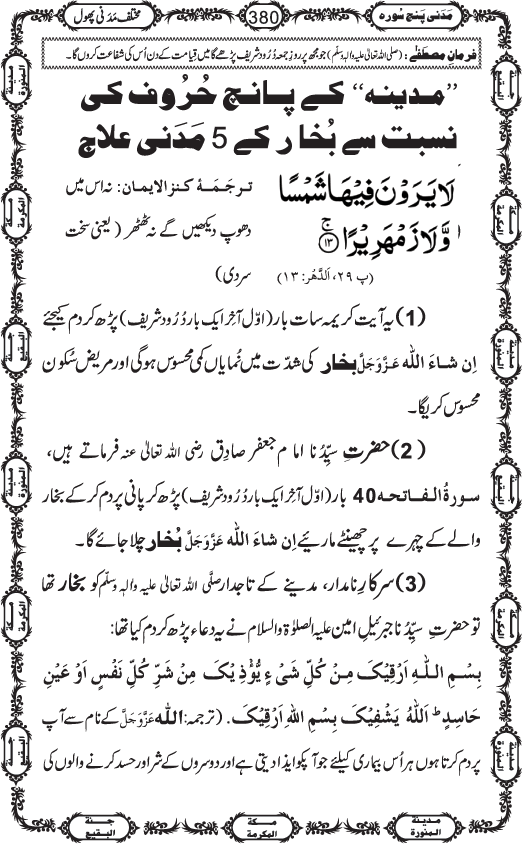 مَدَنی پنج سُورہ
380
مختلف مَدَنی پھول
فرمانِ مصطفٰے : (صلی اللہ تعالیٰ علیہ والہٖ وسلّم) جو مجھ پر روزِ جمعہ دُرُود شریف پڑھے گا میں قیامت کے دن اُس کی شفاعت کروں گا۔
”مدینہ“ کے پانچ حُرُوف کی
نسبت سے بُخار کے 5 مَدَنی علاج
لَا یَرَوْنَ فِیْهَا شَمْسًا
وَّ لَا زَمْهَرِیْرًاۚ(۱۳)
(پ ۲۹، اَلدَّھر: ۱۳)
ترجَمَۂ کنزالایمان: نہ اس میں
دھوپ دیکھیں گے نہ ٹھٹھر (یعنی سخت
سردی)
(1) یہ آیت کریمہ سات بار (اوّل آخِر ایک بار دُرُود شریف) پڑھ کر دم کیجئے
اِن شاءَ اللہ عَزَّوَجَلَّ بخار کی شدّت میں نُمایاں کمی محسوس ہوگی اور مریض سُکون
محسوس کریگا۔
(2) حضرتِ سیِّدُنا امام جعفر صادِق رضی اللہ تعالیٰ عنہ فرماتے ہیں،
سورۃُ الفاتحہ 40 بار (اوّل آخِر ایک بار دُرُود شریف) پڑھ کر پانی پر دم کر کے بخار
والے کے چہرے پر چھینٹے مارئیے اِن شاءَ اللہ عَزَّوَجَلَّ بُخار چلا جائے گا۔
(3) سرکارِ نامدار، مدینے کے تاجدار صلَّی اللہ تعالیٰ علیہ والہٖ وسلّم کو بخار تھا
تو حضرتِ سیِّدُنا جبرئیلِ امین علیہ الصلوٰۃ والسلام نے یہ دعاء پڑھ کر دم کیا تھا:
بِسْمِ اللہِ اَرْقِیْکَ مِنْ کُلِّ شَیْءٍ یُّؤْذِیْکَ مِنْ شَرِّ کُلِّ نَفْسٍ اَوْ عَیْنِ
حَاسِدٍ ؕ اَللہُ یَشْفِیْکَ بِسْمِ اللہِ اَرْقِیْکَ. (ترجمہ: اللہ عَزَّوَجَلَّ کے نام سے آپ
پر دم کرتا ہوں ہر اُس بیماری کیلئے جو آپکو ایذا دیتی ہے اور دوسروں کے شر اور حسد کرنے والوں کی
مدینۃ المنورۃ
مکۃ المکرمۃ
جنۃ البقیع
مدینۃ المنورۃ
مکۃ المکرمۃ
جنۃ البقیع
جنۃ البقیع
مکۃ المکرمۃ
مدینۃ المنورۃ
جنۃ البقیع
مکۃ المکرمۃ
مدینۃ المنورۃ
جنۃ البقیع
مکۃ المکرمۃ
مدینۃ المنورۃ